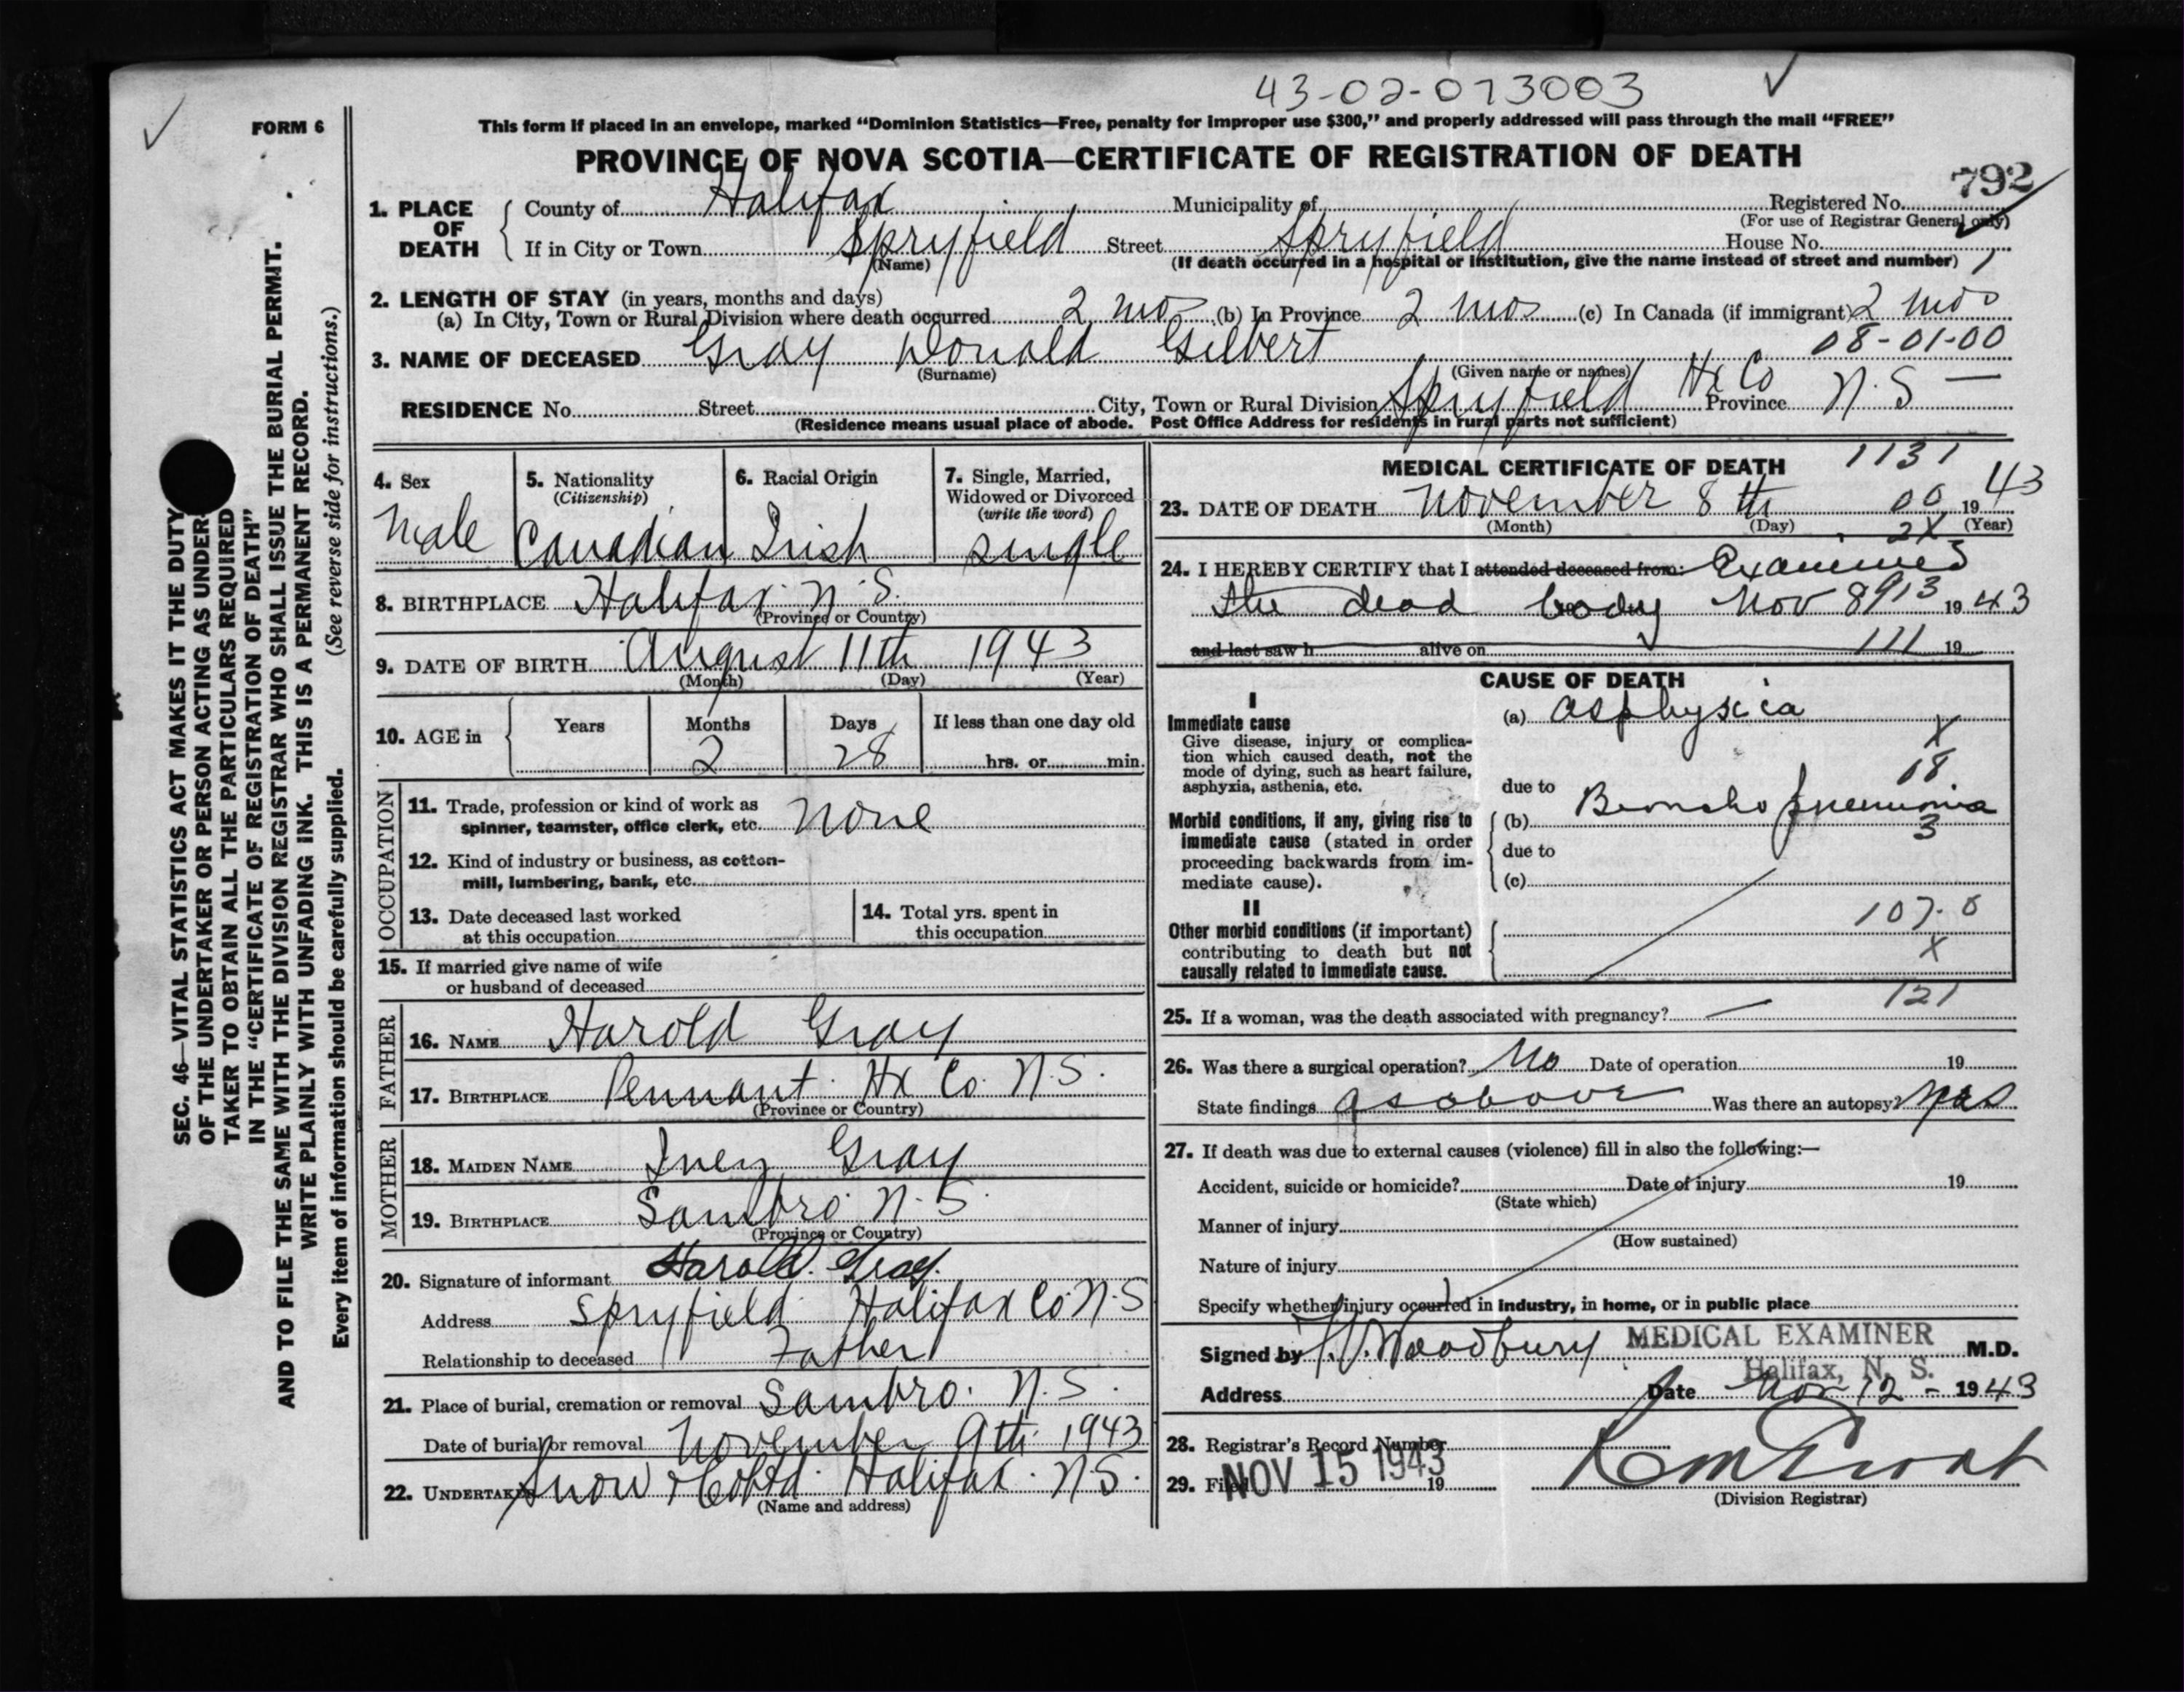 43-02-073003
FORM 6
This form if placed in an envelope, marked "Dominion Statistics—Free, penalty for improper use $300," and properly addressed will pass through the mail "FREE"
PROVINCE OF NOVA SCOTIA—CERTIFICATE OF REGISTRATION OF DEATH
792
1. PLACE OF DEATH
County of Halifax Municipality of Registered No.
(For use of Registrar General only)
If in City or Town Spryfield Street Spryfield House No.
(Name) (If death occurred in a hospital or institution, give the name instead of street and number)
2. LENGTH OF STAY (in years, months and days)
(a) In City, Town or Rural Division where death occurred 2 mos (b) In Province 2 mos (c) In Canada (if immigrant) 2 mos
08-01-00
3. NAME OF DECEASED Gray Donald Gilbert
(Surname) (Given name or names)
RESIDENCE No. Street City, Town or Rural Division Spryfield Hx Co Province N.S —
(Residence means usual place of abode. Post Office Address for residents in rural parts not sufficient)
4. Sex Male
5. Nationality (Citizenship) Canadian
6. Racial Origin Irish
7. Single, Married, Widowed or Divorced (write the word) single
8. BIRTHPLACE Halifax N.S.
(Province or Country)
9. DATE OF BIRTH August 11th 1943
(Month) (Day) (Year)
10. AGE in Years Months 2 Days 28 If less than one day old hrs. or min.
OCCUPATION
11. Trade, profession or kind of work as spinner, teamster, office clerk, etc. None
12. Kind of industry or business, as cotton-mill, lumbering, bank, etc.
13. Date deceased last worked at this occupation
14. Total yrs. spent in this occupation
15. If married give name of wife or husband of deceased
FATHER
16. NAME Harold Gray
17. BIRTHPLACE Pennant Hx Co. N.S.
(Province or Country)
MOTHER
18. MAIDEN NAME Inez Gray
19. BIRTHPLACE Sambro N.S
(Province or Country)
20. Signature of informant Harold Gray.
Address Spryfield Halifax Co N.S
Relationship to deceased Father
21. Place of burial, cremation or removal Sambro. N.S.
Date of burial or removal November 9th 1943
22. UNDERTAKER Snow & Co Ltd. Halifax. N.S.
(Name and address)
MEDICAL CERTIFICATE OF DEATH 1131
23. DATE OF DEATH November 8th 00 1943
(Month) (Day) 2X (Year)
24. I HEREBY CERTIFY that I attended deceased from: Examined
the dead body Nov 8 913 1943
and last saw h alive on 111 19
CAUSE OF DEATH
I
Immediate cause
Give disease, injury or complication which caused death, not the mode of dying, such as heart failure, asphyxia, asthenia, etc.
(a) asphyxia
X
18
due to
Morbid conditions, if any, giving rise to immediate cause (stated in order proceeding backwards from immediate cause).
(b) Broncho pneumonia
3
due to
(c)
II
Other morbid conditions (if important) contributing to death but not causally related to immediate cause.
107.0
X
121
25. If a woman, was the death associated with pregnancy? —
26. Was there a surgical operation? No Date of operation 19
State findings as above Was there an autopsy? yes
27. If death was due to external causes (violence) fill in also the following:—
Accident, suicide or homicide? Date of injury 19
(State which)
Manner of injury
(How sustained)
Nature of injury
Specify whether injury occurred in industry, in home, or in public place
Signed by Woodbury MEDICAL EXAMINER M.D.
Halifax, N. S.
Address Date Nov 12 - 1943
28. Registrar's Record Number
29. Filed NOV 15 1943 19
(Division Registrar)
SEC. 46—VITAL STATISTICS ACT MAKES IT THE DUTY
OF THE UNDERTAKER OR PERSON ACTING AS UNDER-
TAKER TO OBTAIN ALL THE PARTICULARS REQUIRED
IN THE "CERTIFICATE OF REGISTRATION OF DEATH"
AND TO FILE THE SAME WITH THE DIVISION REGISTRAR WHO SHALL ISSUE THE BURIAL PERMIT.
WRITE PLAINLY WITH UNFADING INK. THIS IS A PERMANENT RECORD.
Every item of information should be carefully supplied. (See reverse side for instructions.)